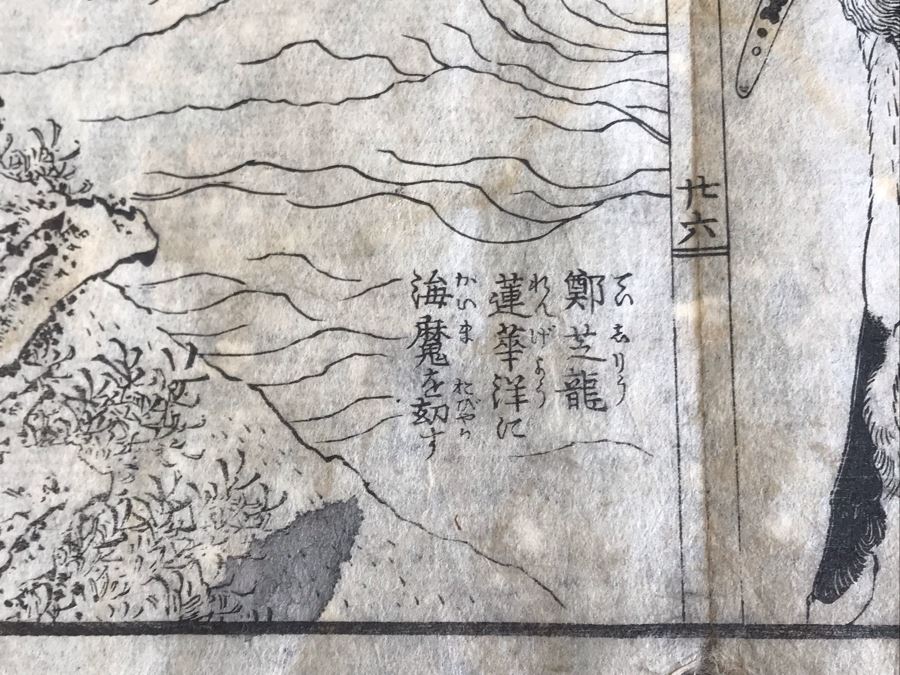 廿六
鄭芝龍
ていしりう
蓮華洋に
れんげよう
海魔を劾す
かいま おびやか